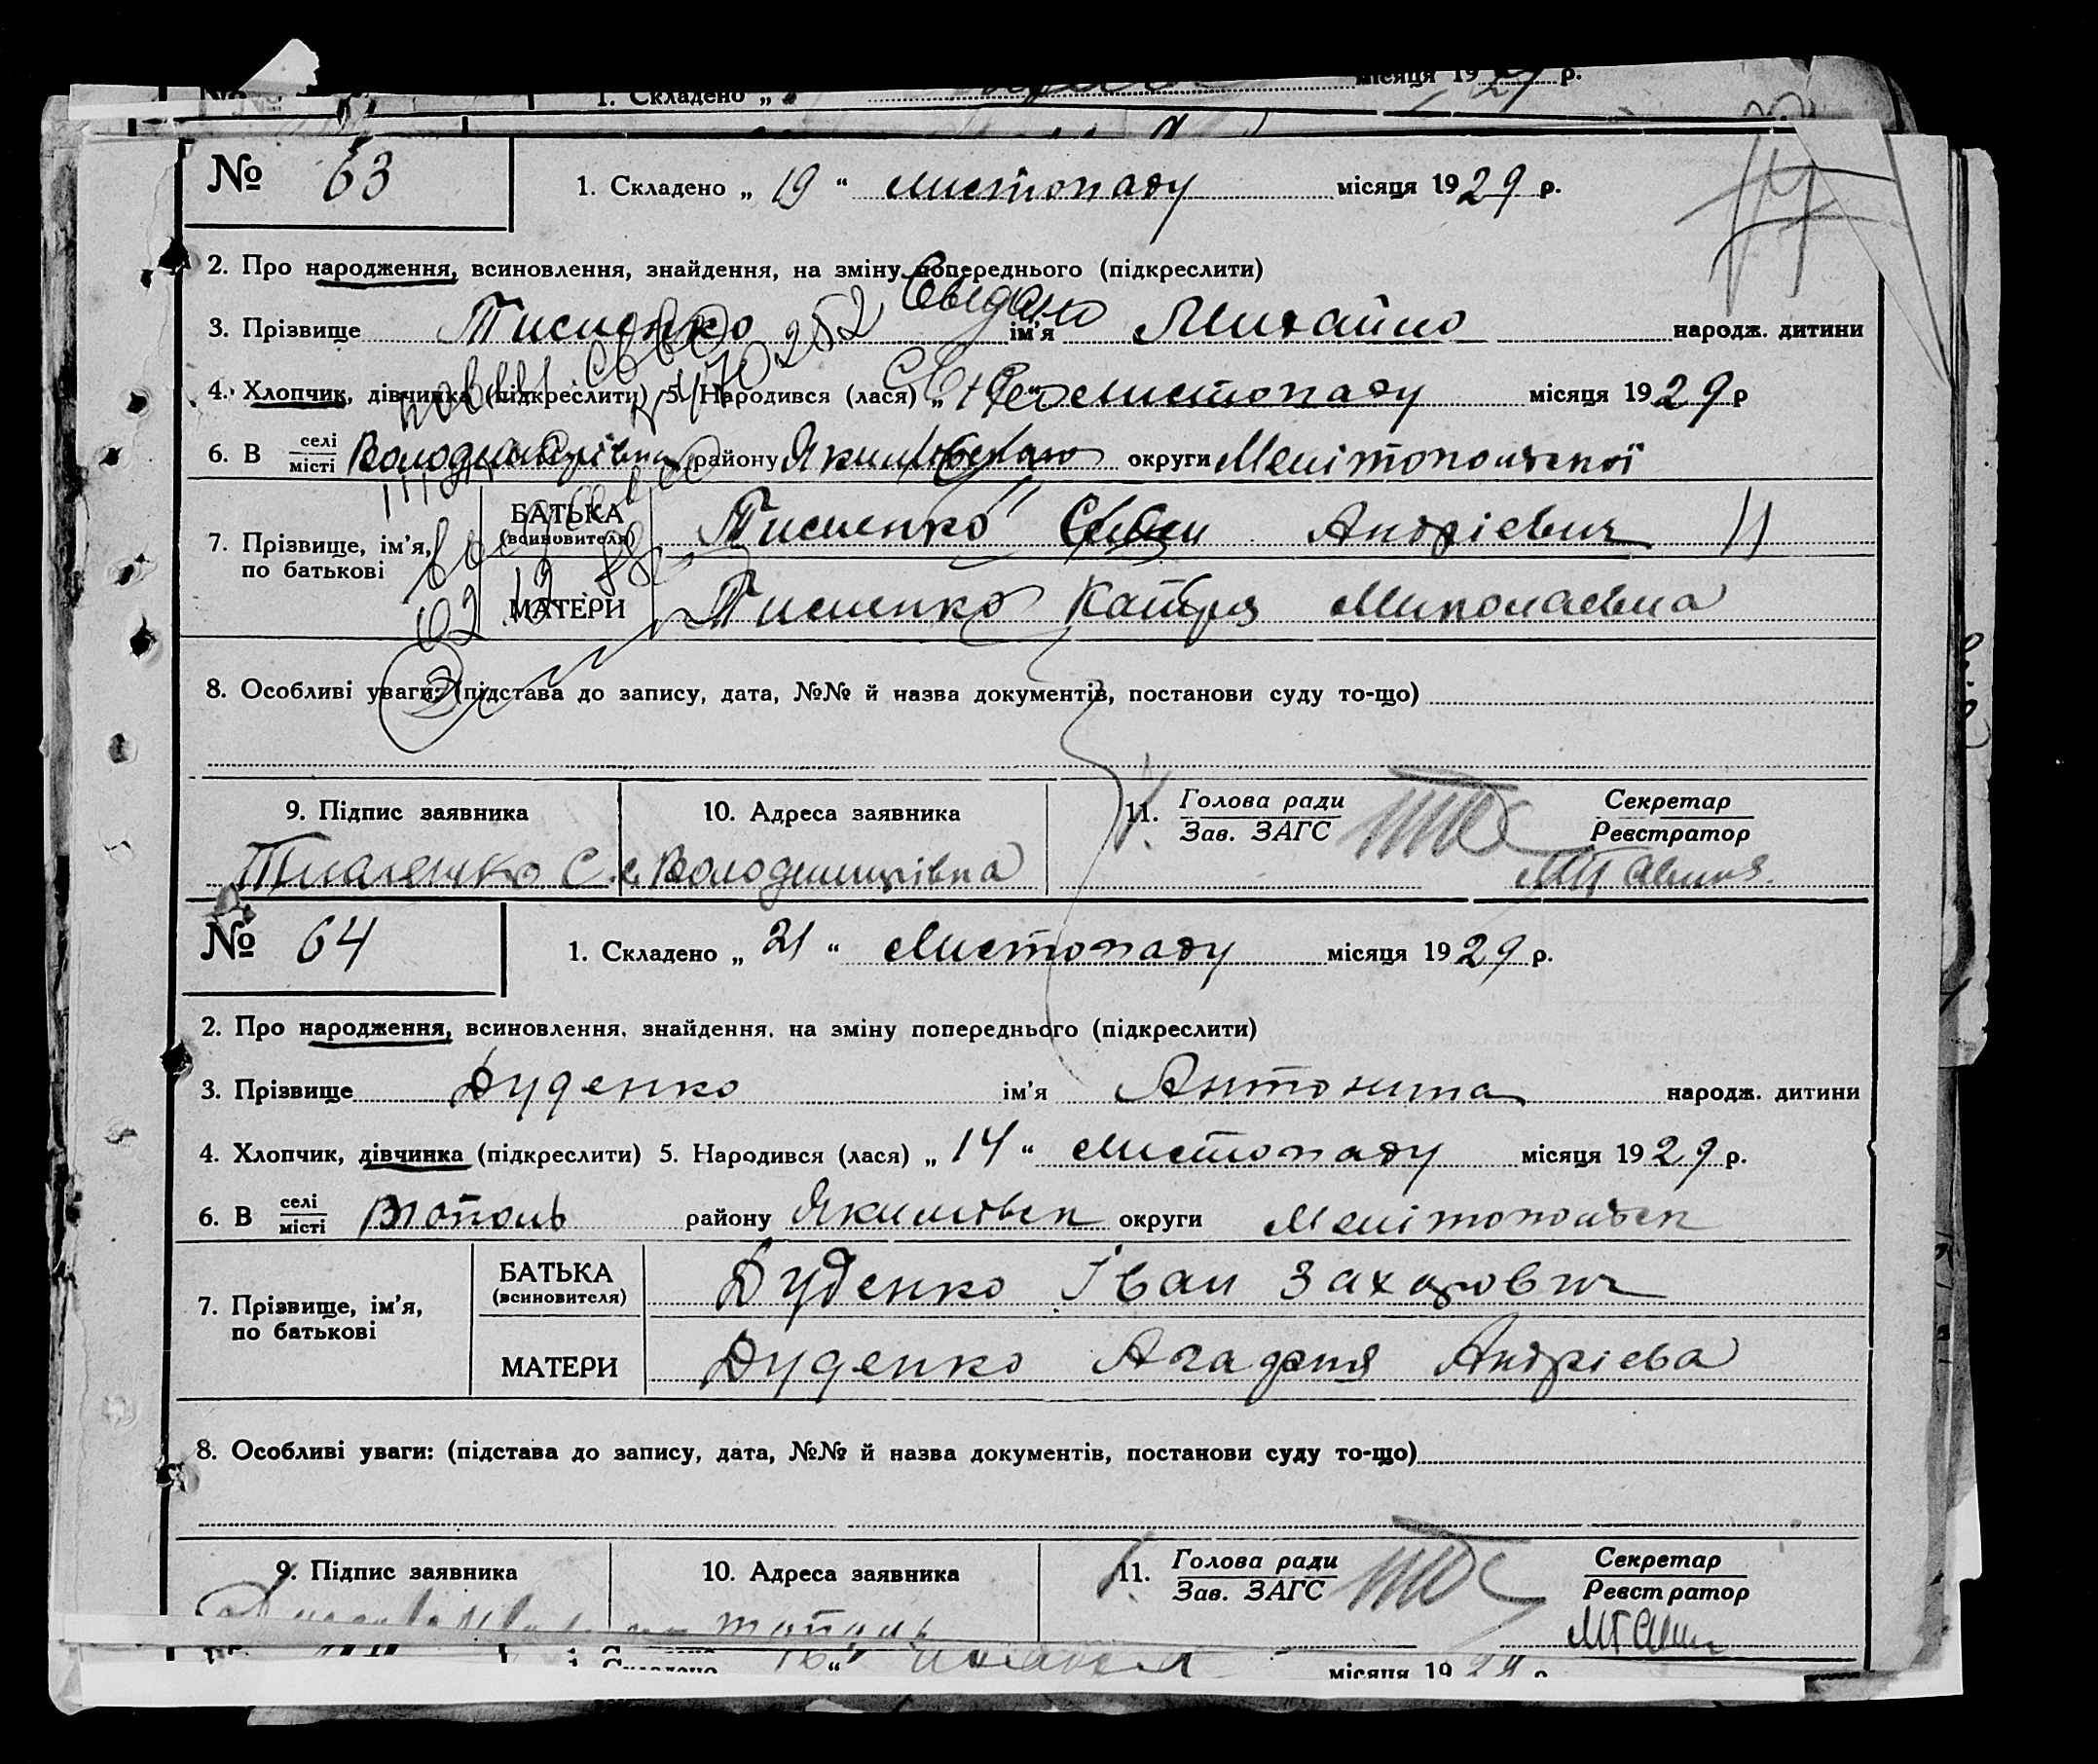 1. Складено „
місяця 1929 р.
№ 63
1. Складено „ 19 “ листопаду місяця 1929 р.
2. Про народження, всиновлення, знайдення, на зміну попереднього (підкреслити)
3. Прізвище Тисленко ім'я Михайло народж. дитини
4. Хлопчик, дівчинка (підкреслити) 5. Народився (лася) „ “ листопаду місяця 1929 р
6. В селі/місті Володимирівка району Якимівською округи Мелітопольської
7. Прізвище, ім'я, по батькові
БАТЬКА (всиновителя) Тисленко Андрієвич
МАТЕРИ Тисленко Катря Миколаєвна
8. Особливі уваги: (підстава до запису, дата, №№ й назва документів, постанови суду то-що)
9. Підпис заявника
10. Адреса заявника
11. Голова ради / Зав. ЗАГС
Секретар / Реєстратор
Тисленко С. с. Володимирівка
№ 64
1. Складено „ 21 “ Листопаду місяця 1929 р.
2. Про народження, всиновлення, знайдення, на зміну попереднього (підкреслити)
3. Прізвище Дуденко ім'я Антонина народж. дитини
4. Хлопчик, дівчинка (підкреслити) 5. Народився (лася) „ 14 “ листопаду місяця 1929 р.
6. В селі/місті Тополь району Якимівськ округи Мелітопольськ
7. Прізвище, ім'я, по батькові
БАТЬКА (всиновителя) Дуденко Іван Захарович
МАТЕРИ Дуденко Агафія Андрієва
8. Особливі уваги: (підстава до запису, дата, №№ й назва документів, постанови суду то-що)
9. Підпис заявника
10. Адреса заявника
11. Голова ради / Зав. ЗАГС
Секретар / Реєстратор
тополь
1. Складено 16 “ місяця 1929 р.